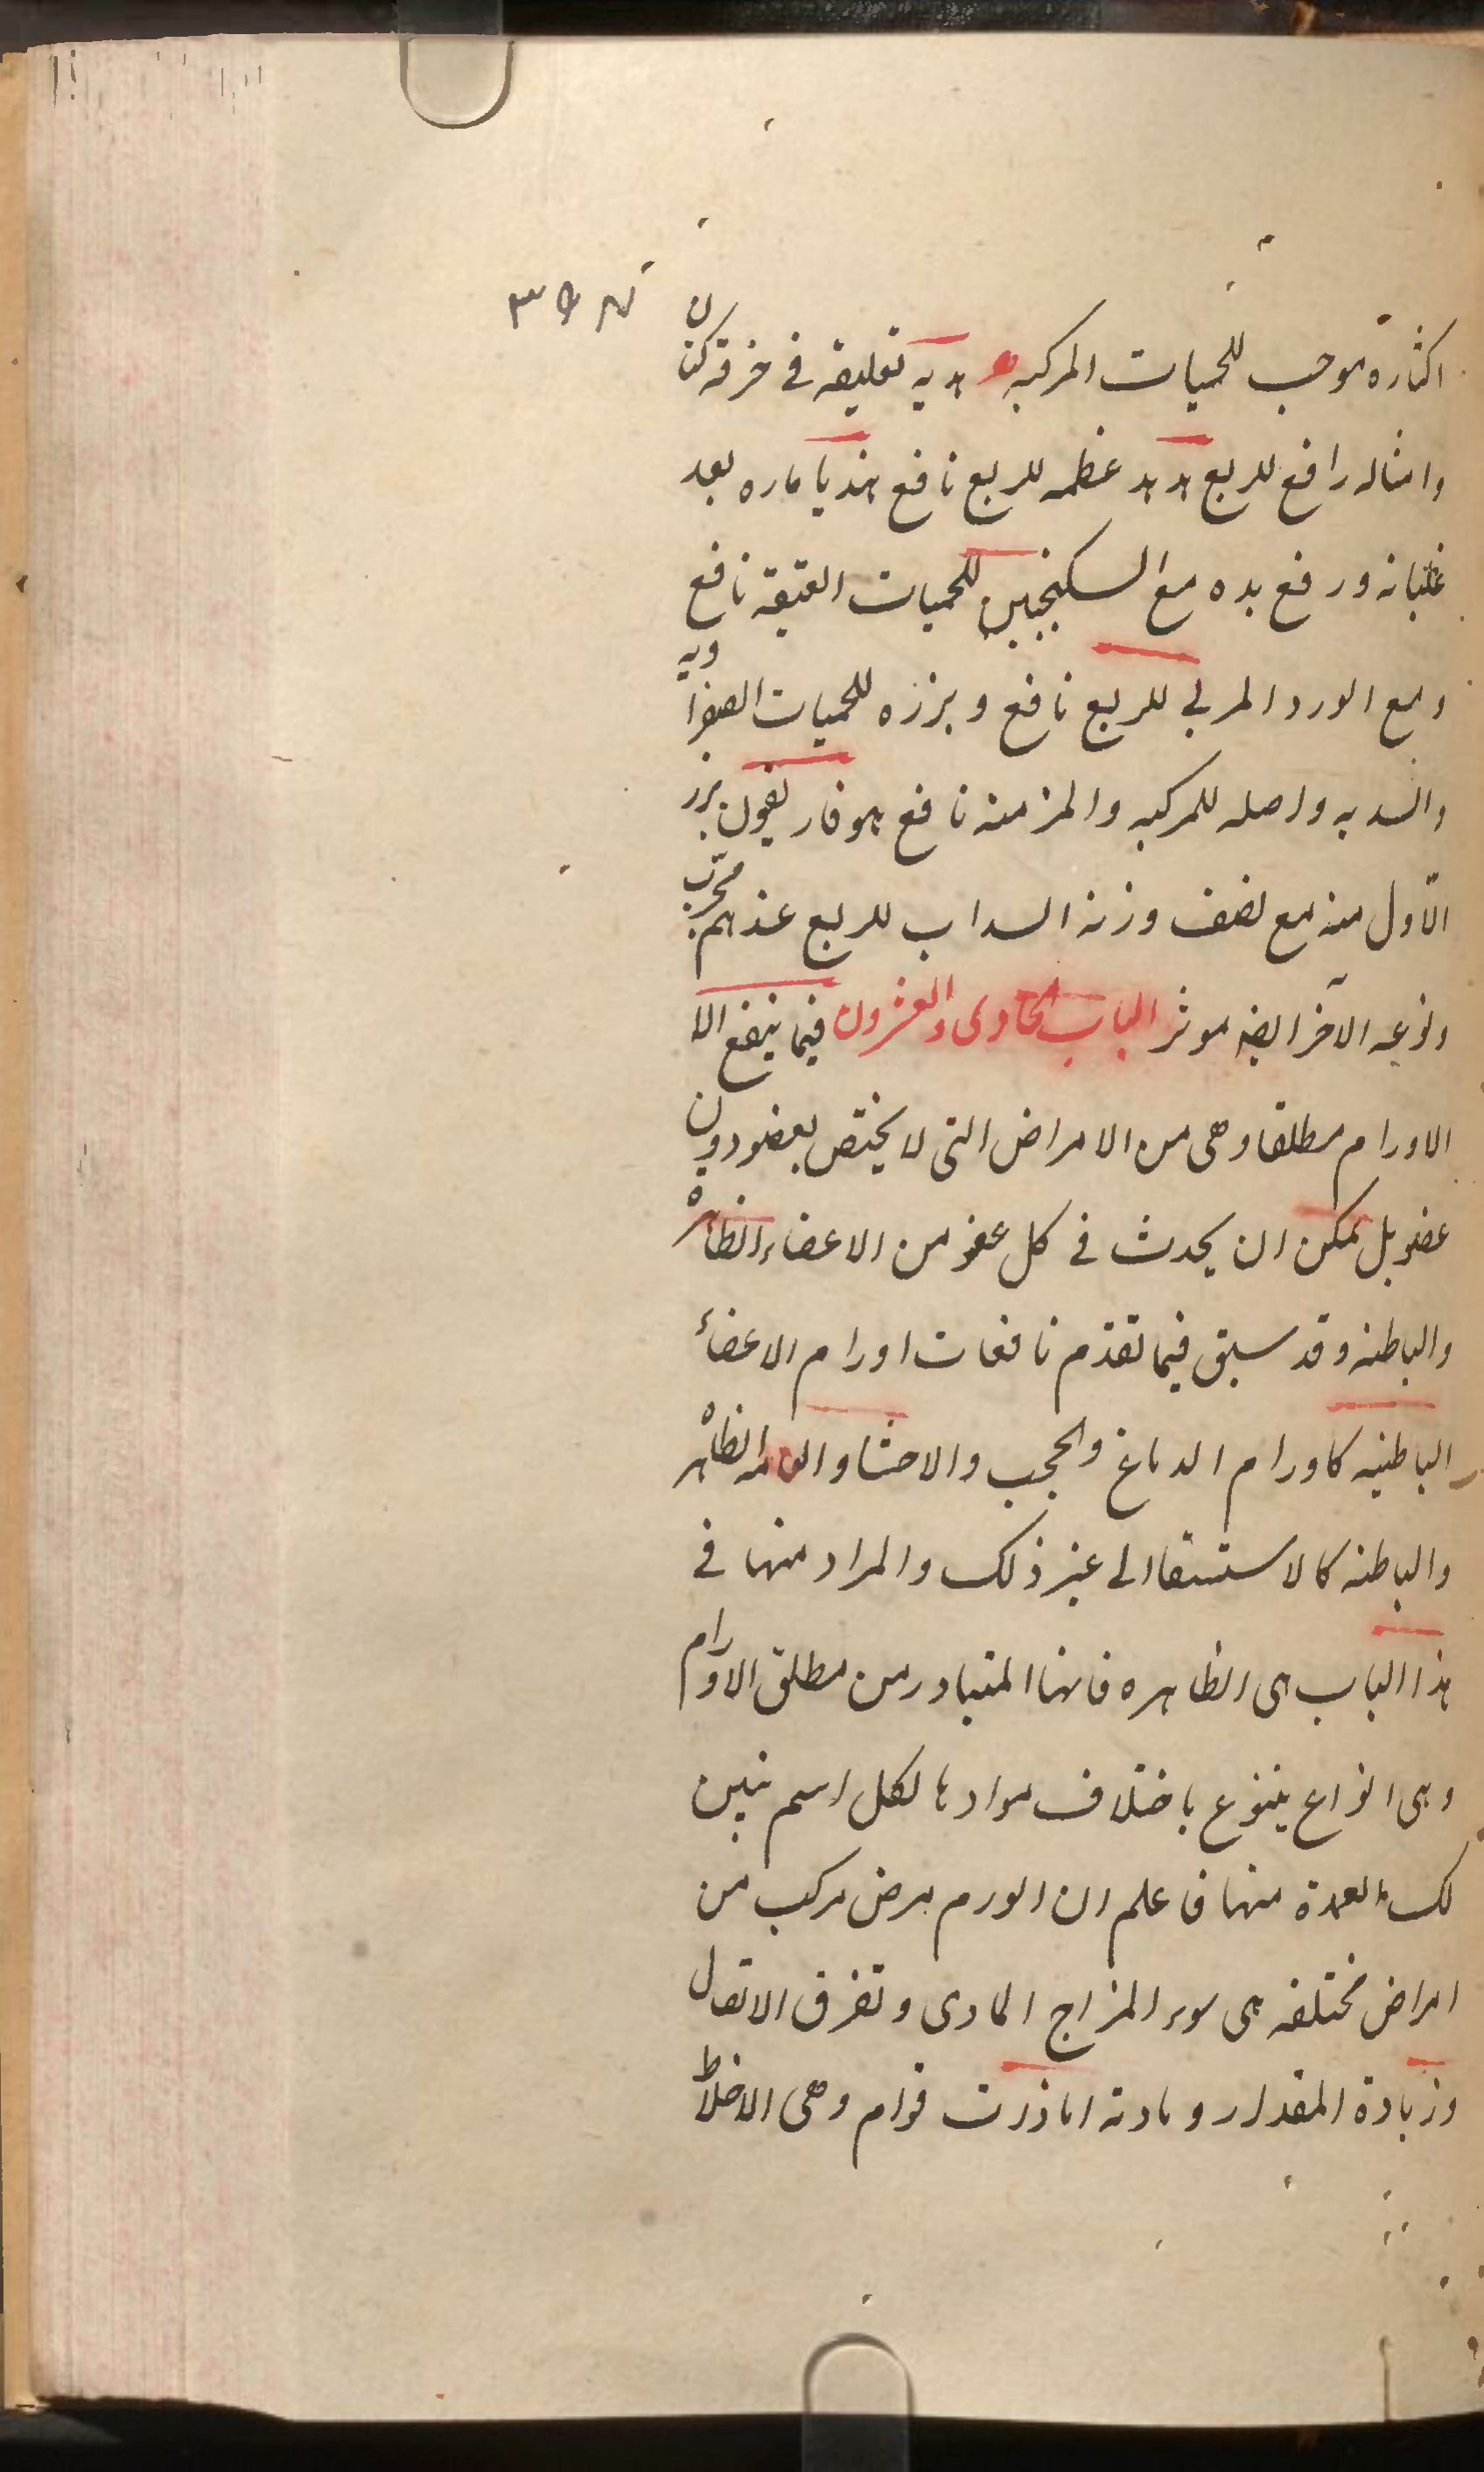 اكثاره موجب للحميات المركبه تعليقه فى خرقه كتان
وامثاله رافع للربع هدهد عظمه للربع نافع هندبا ماره بعد
غليانه ورفع بده مع السكنجبين للحميات العتيقه نافع
ومع الورد المربى للربع نافع وبزره للحميات الصفراويه
والسديه واصله للمركبه والمزمنه نافع هوفاريقون بزر
الاول منه مع نصف وزنه السداب للربع عندهم مجرب
ونوعه الآخر ايضه موثر الباب الحادى والعشرون فيما ينفع الا
الاورام مطلقا وهى من الامراض التى لا يختص بعضو دون
عضو بل يمكن ان يحدث فى كل عضو من الاعضاء الظاهره
والباطنه وقد سبق فيما تقدم نافعات اورام الاعضاء
الباطنيه كاورام الدماغ والحجب والاحشا و الظاهره
والباطنه كالاستسقا الى غير ذلك والمراد منها فى
هذا الباب هى الظاهره فانها المتبادر من مطلق الاورام
وهى انواع يتنوع باختلاف موادها لكل اسم نبين
لك العمدة منها فاعلم ان الورم مرض مركب من
امراض مختلفه هى سوء المزاج المادى وتفرق الاتصال
وزيادة المقدار ومادته اما ذات قوام وهى الاخلاط